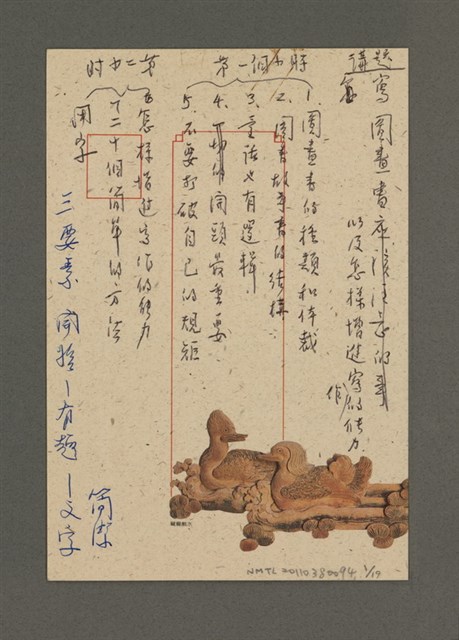 講題
寫圖畫書應該注意的事
以及怎樣增進寫作的能力
第一個小時
1. 圖畫書的種類和体裁
2. 圖畫故事書的結構
3. 童話也有邏輯
4. 故事的開頭最重要
5. 不要打破自己的規矩
第二小时
怎樣增進寫作的能力
二十個簡單的方法
三要素 開始—有趣—文字
簡潔
NMTL 20110380094, 1/19